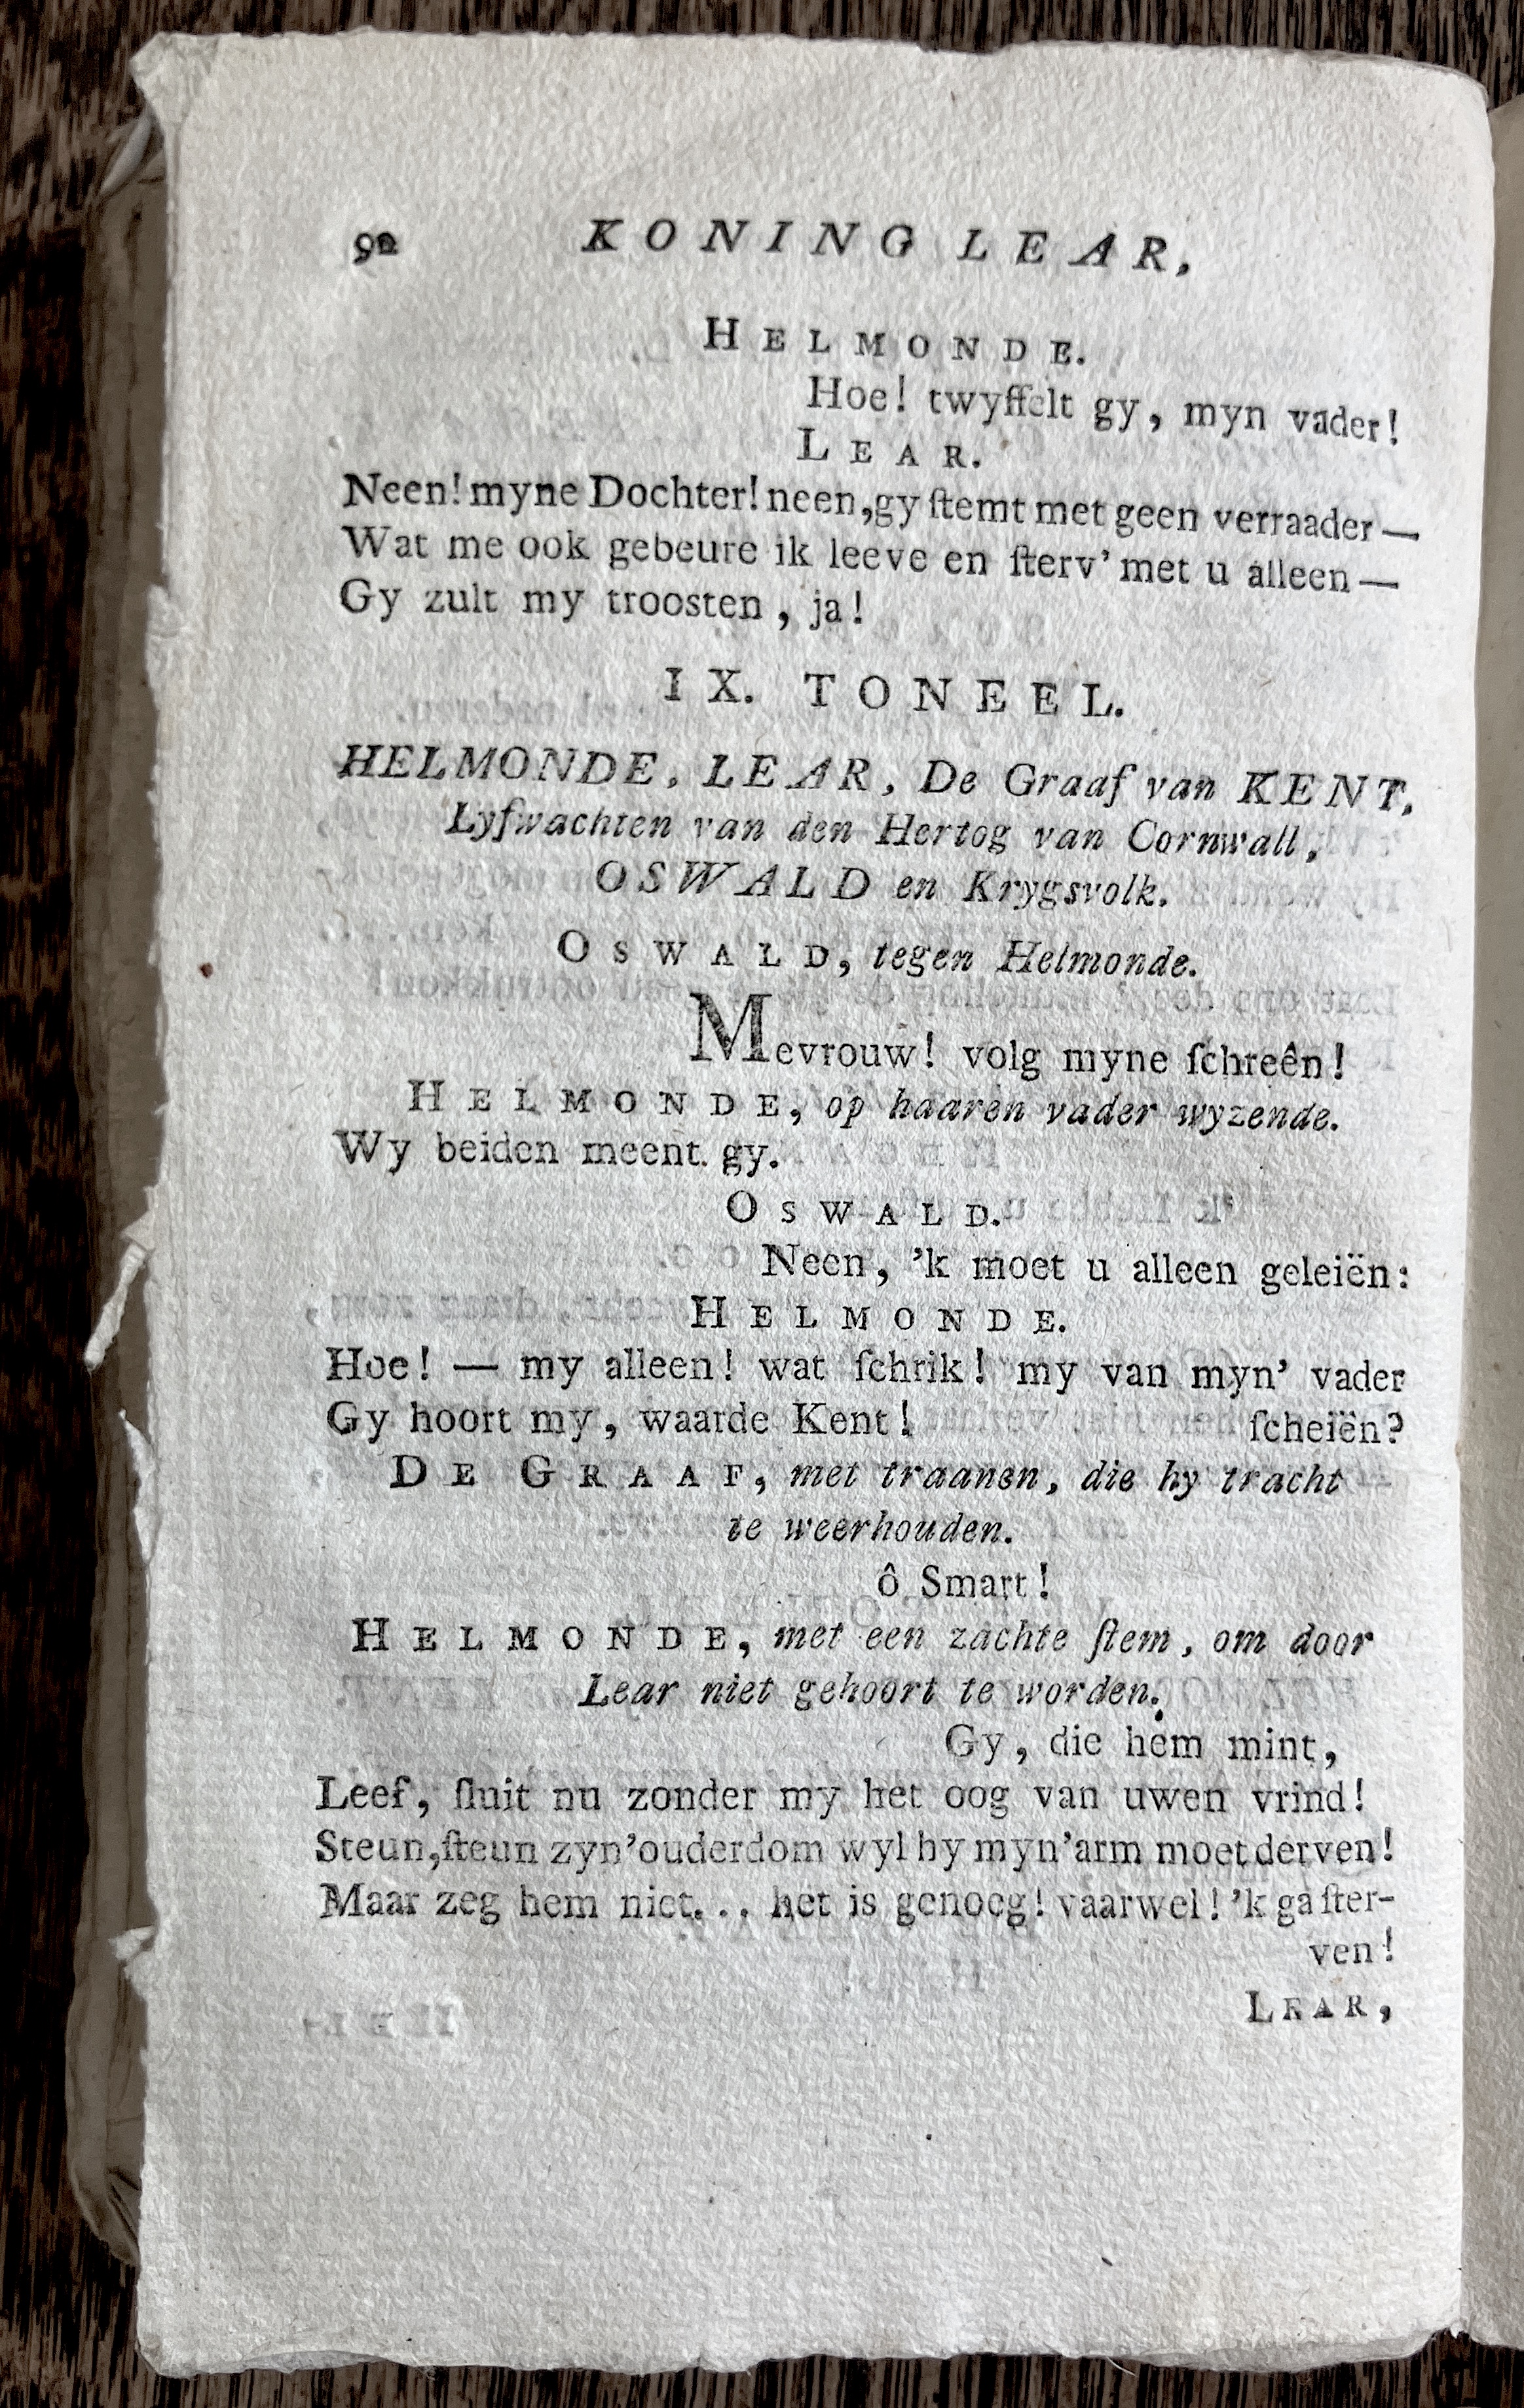 92 KONING LEAR,
HELMONDE.
Hoe! twyffelt gy, myn vader!
LEAR.
Neen! myne Dochter! neen, gy ſtemt met geen verraader —
Wat me ook gebeure ik leeve en ſterv' met u alleen —
Gy zult my troosten, ja!
IX. TONEEL.
HELMONDE, LEAR, De Graaf van KENT,
Lyfwachten van den Hertog van Cornwall,
OSWALD en Krygsvolk.
OSWALD, tegen Helmonde.
Mevrouw! volg myne ſchreên!
HELMONDE, op haaren vader wyzende.
Wy beiden meent gy.
OSWALD.
Neen, 'k moet u alleen geleiën:
HELMONDE.
Hoe! — my alleen! wat ſchrik! my van myn' vader
Gy hoort my, waarde Kent! ſcheiën?
DE GRAAF, met traanen, die hy tracht
te weerhouden.
ô Smart!
HELMONDE, met een zachte ſtem, om door
Lear niet gehoort te worden.
Gy, die hem mint,
Leef, ſluit nu zonder my het oog van uwen vrind!
Steun, ſteun zyn' ouderdom wyl hy myn' arm moet derven!
Maar zeg hem niet... het is genoeg! vaarwel! 'k ga ſter-
ven!
LEAR,